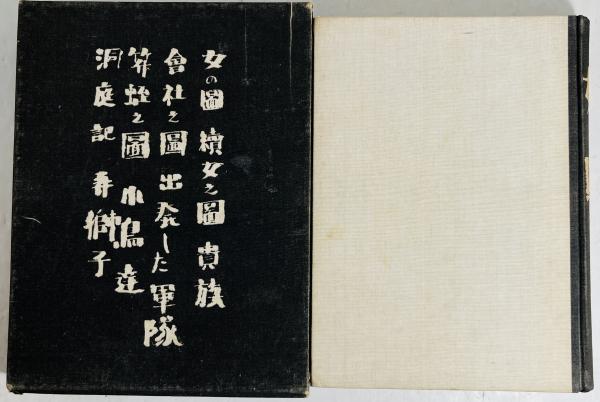 女の圖 續女之圖 貴族
會社之圖 出発した軍隊
算蛭之圖 小鳥達
洞庭記 弄獅子